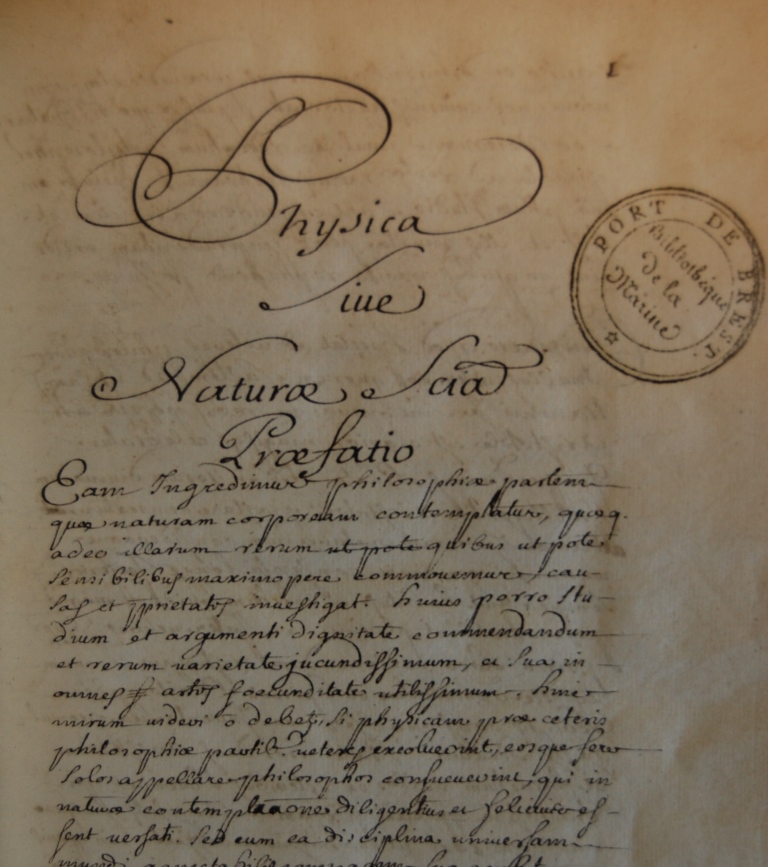 1
Physica
Siue
Naturæ Scia
Præfatio
PORT DE BREST
Bibliothèque
de la
Marine
Eam Ingredimur philosophiæ partem
quæ naturam corpoream contemplatur, quæq.
adeo illarum rerum ut pote quibus ut pote
sensibilibus maximopere commouemur, cau-
sas et pprietates inuestigat. huius porro stu-
dium et argumenti dignitate commendandum
et rerum uarietate jucundissimum, et sua in
omnes artes foecunditate utilissimum. hinc
mirum uideri õ debet, si physicam præ ceteris
philosophiæ partib. ueteres excoluerint, eosque fere
solos appellare philosophos consueuerint, qui in
naturæ contemplaone diligentius et felicius es-
sent uersati. Sed cum ea disciplina uniuersam
mundi